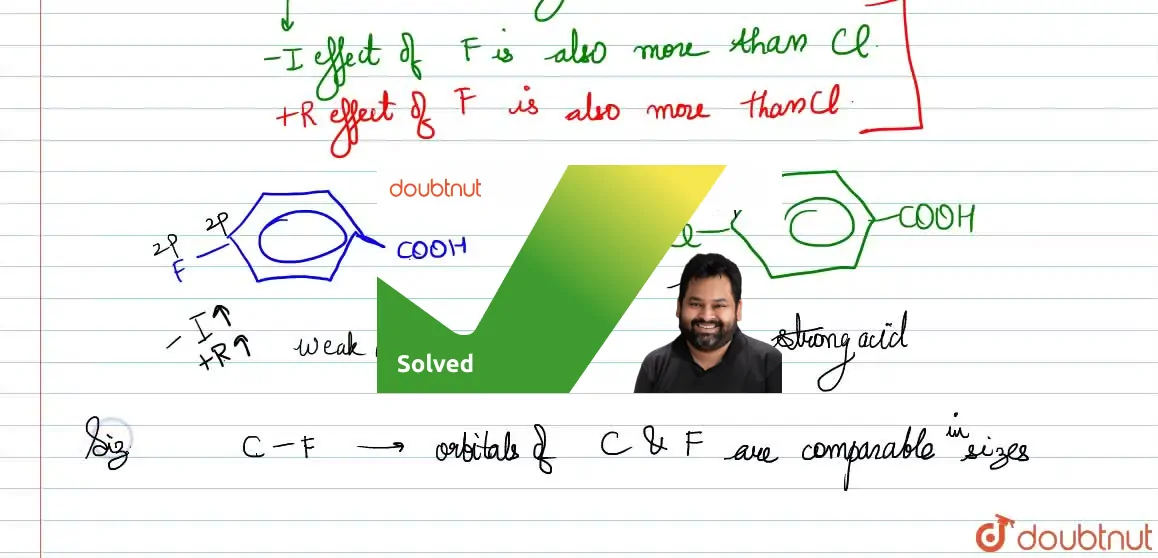 -I effect of F is also more than Cl.
+R effect of F is also more than Cl.
doubtnut
2p
2p
F
COOH
COOH
-I↑
+R↑
weak
strong acid
Solved
Siz
C-F → orbitals of C & F are comparable in sizes
doubtnut